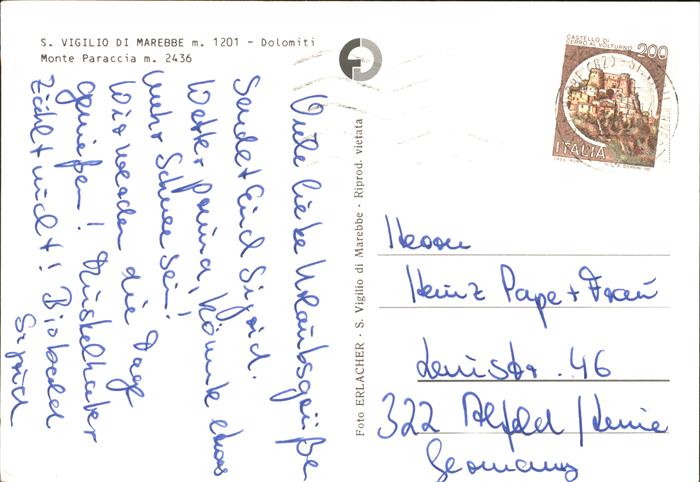 S. VIGILIO DI MAREBBE m. 1201 - Dolomiti
Monte Paraccia m. 2436
Viele liebe Urlaubsgrüße
Sendet Eind Sigrid.
Wetter prima, könnte etwas
mehr Schnee sein!
Wir werden die Tage
genießen! Muskelkater
zählt nicht! Bis bald
Sigrid
Foto ERLACHER - S. Vigilio di Marebbe - Riprod. vietata
CASTELLO DI
CERRO AL VOLTURNO
200
ITALIA
Herrn
Heinz Pape + Frau
46
322 Alfeld / Leine
Germany